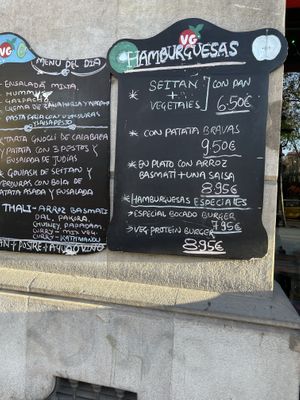 VG
MENU DEL DIA
- ENSALADA MIXTA
HUMMUS
GAZPACHO
CREMA DE ZANAHORIA Y
PASTA CON VERDURAS
* TARTA GNOCLI DE CALABRICA
Y PATATA CON 3 PESTOS Y
ENSALADA DE JUDIAS
* GOULASH DE SEITAN Y
VERDURAS CON BOLA DE
PATATA ASADA Y ENSALADA
THALI - ARROZ BASMATI
DAL, PAKORA
CHUTNEY, PAPADAM
CURRY - MIX VEG.
CURRY - KATHMANDU
PAN + POSTRE + AGUA O VINO
VG
HAMBURGUESAS
* SEITAN
+
VEGETALES
CON PAN
6.50€
* CON PATATA BRAVAS
9.50€
* EN PLATO CON ARROZ
BASMATI + UNA SALSA
8.95€
* HAMBURGUESAS ESPECIALES
> ESPECIAL BOCADO BURGER
7.95€
> VEG PROTEIN BURGER
8.95€